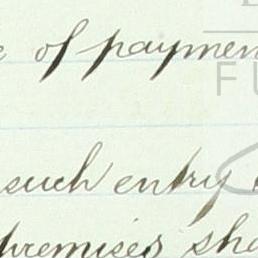 of paymen
such entry
premises sha